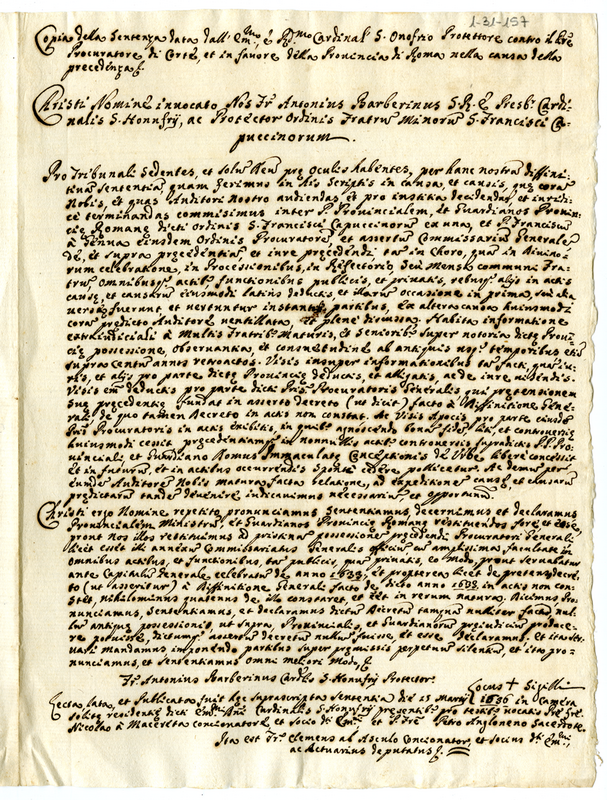 1-31-157
Copia della Sentenza data dall' Em.mo, e R.dmo Cardinal S. Onofrio Protettore contro il P.re
Procuratore di Corte, et in favore della Provincia di Roma nella causa della
precedenza &.
Christi Nomine invocato Nos Fr. Antonius Barberinus S. R. E. Presb. Cardi-
nalis S. Honufrij, ac Protector Ordinis Fratrū Minorū S. Francisci Ca-
puccinorum.
Pro Tribunali sedentes, et solū Deū prę oculis habentes, per hanc nostrā diffini-
tivā sententiā, quam ferimus in his scriptis in causa, et causis, quę corā
Nobis, et quas Auditori Nostro audiendas, et pro iustitia decidendas, et in fi-
ne terminandas commisimus inter P. Provincialem, et Guardianos Provin-
cię Romanę dicti Ordinis S. Francisci Capuccinorum ex una, et P. Franciscū
à Genua eiusdem Ordinis Procuratorē, et assertū Commissariū Generalē
de, et supra pręcedentia, et iure pręcedendi tā in Choro, quā in Divino-
rum celebratione, in Processionibus, in Refectorio seu Mensa communi Fra-
trū omnibusq. actib. functionibus publicis, et privatis, rebusq. alijs in actis
causę, et causarū eiusmodi latius deductis, et illarū occasione in prima, seu alia
fuerunt, et vertuntur instantijs partibus, ex altera causa huiusmodi
corā predicto Auditore ventillata, et plene discussa. Habita informatione
extraiudiciali à Multis Fratrib. Maturis, et Seniorib. super notoria dictę Provin-
cię possessione, observantia, et consuetudine ab antiquis usq. temporibus etiā
supra Centū annos retroactos. Visis insuper informationibus tā facti, quā iu-
ris, et alijs pro parte dictę Provincię deductis, et allegatis, ac de iure videndis.
Visis etiā deductis pro parte dicti P.ris Procuratoris Generalis, qui pretensionem
suę pręcedentię fundat in asserto Decreto (ut dicit) facto à Diffinitione Gene-
rali, de quo tamen Decreto in actis non constat. Ac visis Apocis pro parte eiusdē
P.ris Procuratoris in actis exhibitis, in quib. agnoscendo bonā fidē litis, et controversię
huiusmodi cessit pręcedentiam in nonnullis actib. controversis supradictis PP. Pro-
vinciali, et Guardiano Domus Immaculatę Conceptionis de Urbe libere concessit
et in futurū, et in actibus occurrendis sponte cedere pollicetur. Ac demū per
eundē Auditorē Nobis matura facta relatione, ad expeditionē causę, et causarū
prędictarū tandē devenire iudicavimus necessariū, et opportunū.
Christi ergo Nomine repetito pronunciamus, Sententiamus, decernimus et declaramus
Provincialem Ministrū, et Guardianos Provincię Romanę restituendos fore, et esse,
prout nos illos restituimus ad pristinā possessionē pręcedendi Procuratori Generali
licet esset illi annexū Commissariatus Generalis officiū cū amplissima facultate in
omnibus actibus, et functionibus, tā publicis, quā privatis, eo modo, prout servabatur
ante Capitulū Generale celebratū de anno 1633, et propterea licet de pretenso decre-
to (ut asseritur) à Diffinitione Generali facto de dicto anno 1633 in actis non con-
stet, nihilominus quatenus de illo constaret, et esset in rerum natura. Dicimus, Pro-
nunciamus, Sententiamus, et declaramus dictū Decretū tamquā nulliter factū nul-
lū antiquę possessionis, ut supra, Provincialis, et Guardianorū preiudiciū produce-
re potuisse, dictumq. assertū decretū nullū fuisse, et esse declaramus. Et ita obser-
vari mandamus imponendo partibus super pręmissis perpetuū silentiū, et ita pro-
nunciamus, et sententiamus omni meliori modo, &
Fr. Antonius Barberinus Card.lis S. Honufrij Protector.
Locus + Sigilli
Lecta, lata, et publicata fuit hęc suprascripta Sententia die 13 Martij 1636 in Camera
solitę residentię dicti Em.mi D.ni Cardinalis S. Honufrij presentib. pro testib. vocatis P.re Fre
Nicolao à Macerata concionatore, et socio d.ti Em.mi et P. Fre Petro Angloneno sacerdote.
Ita est Fr. Clemens ab Asculo Concionator, et Socius d.ti Em.mi,
ac Actuarius deputatus &.